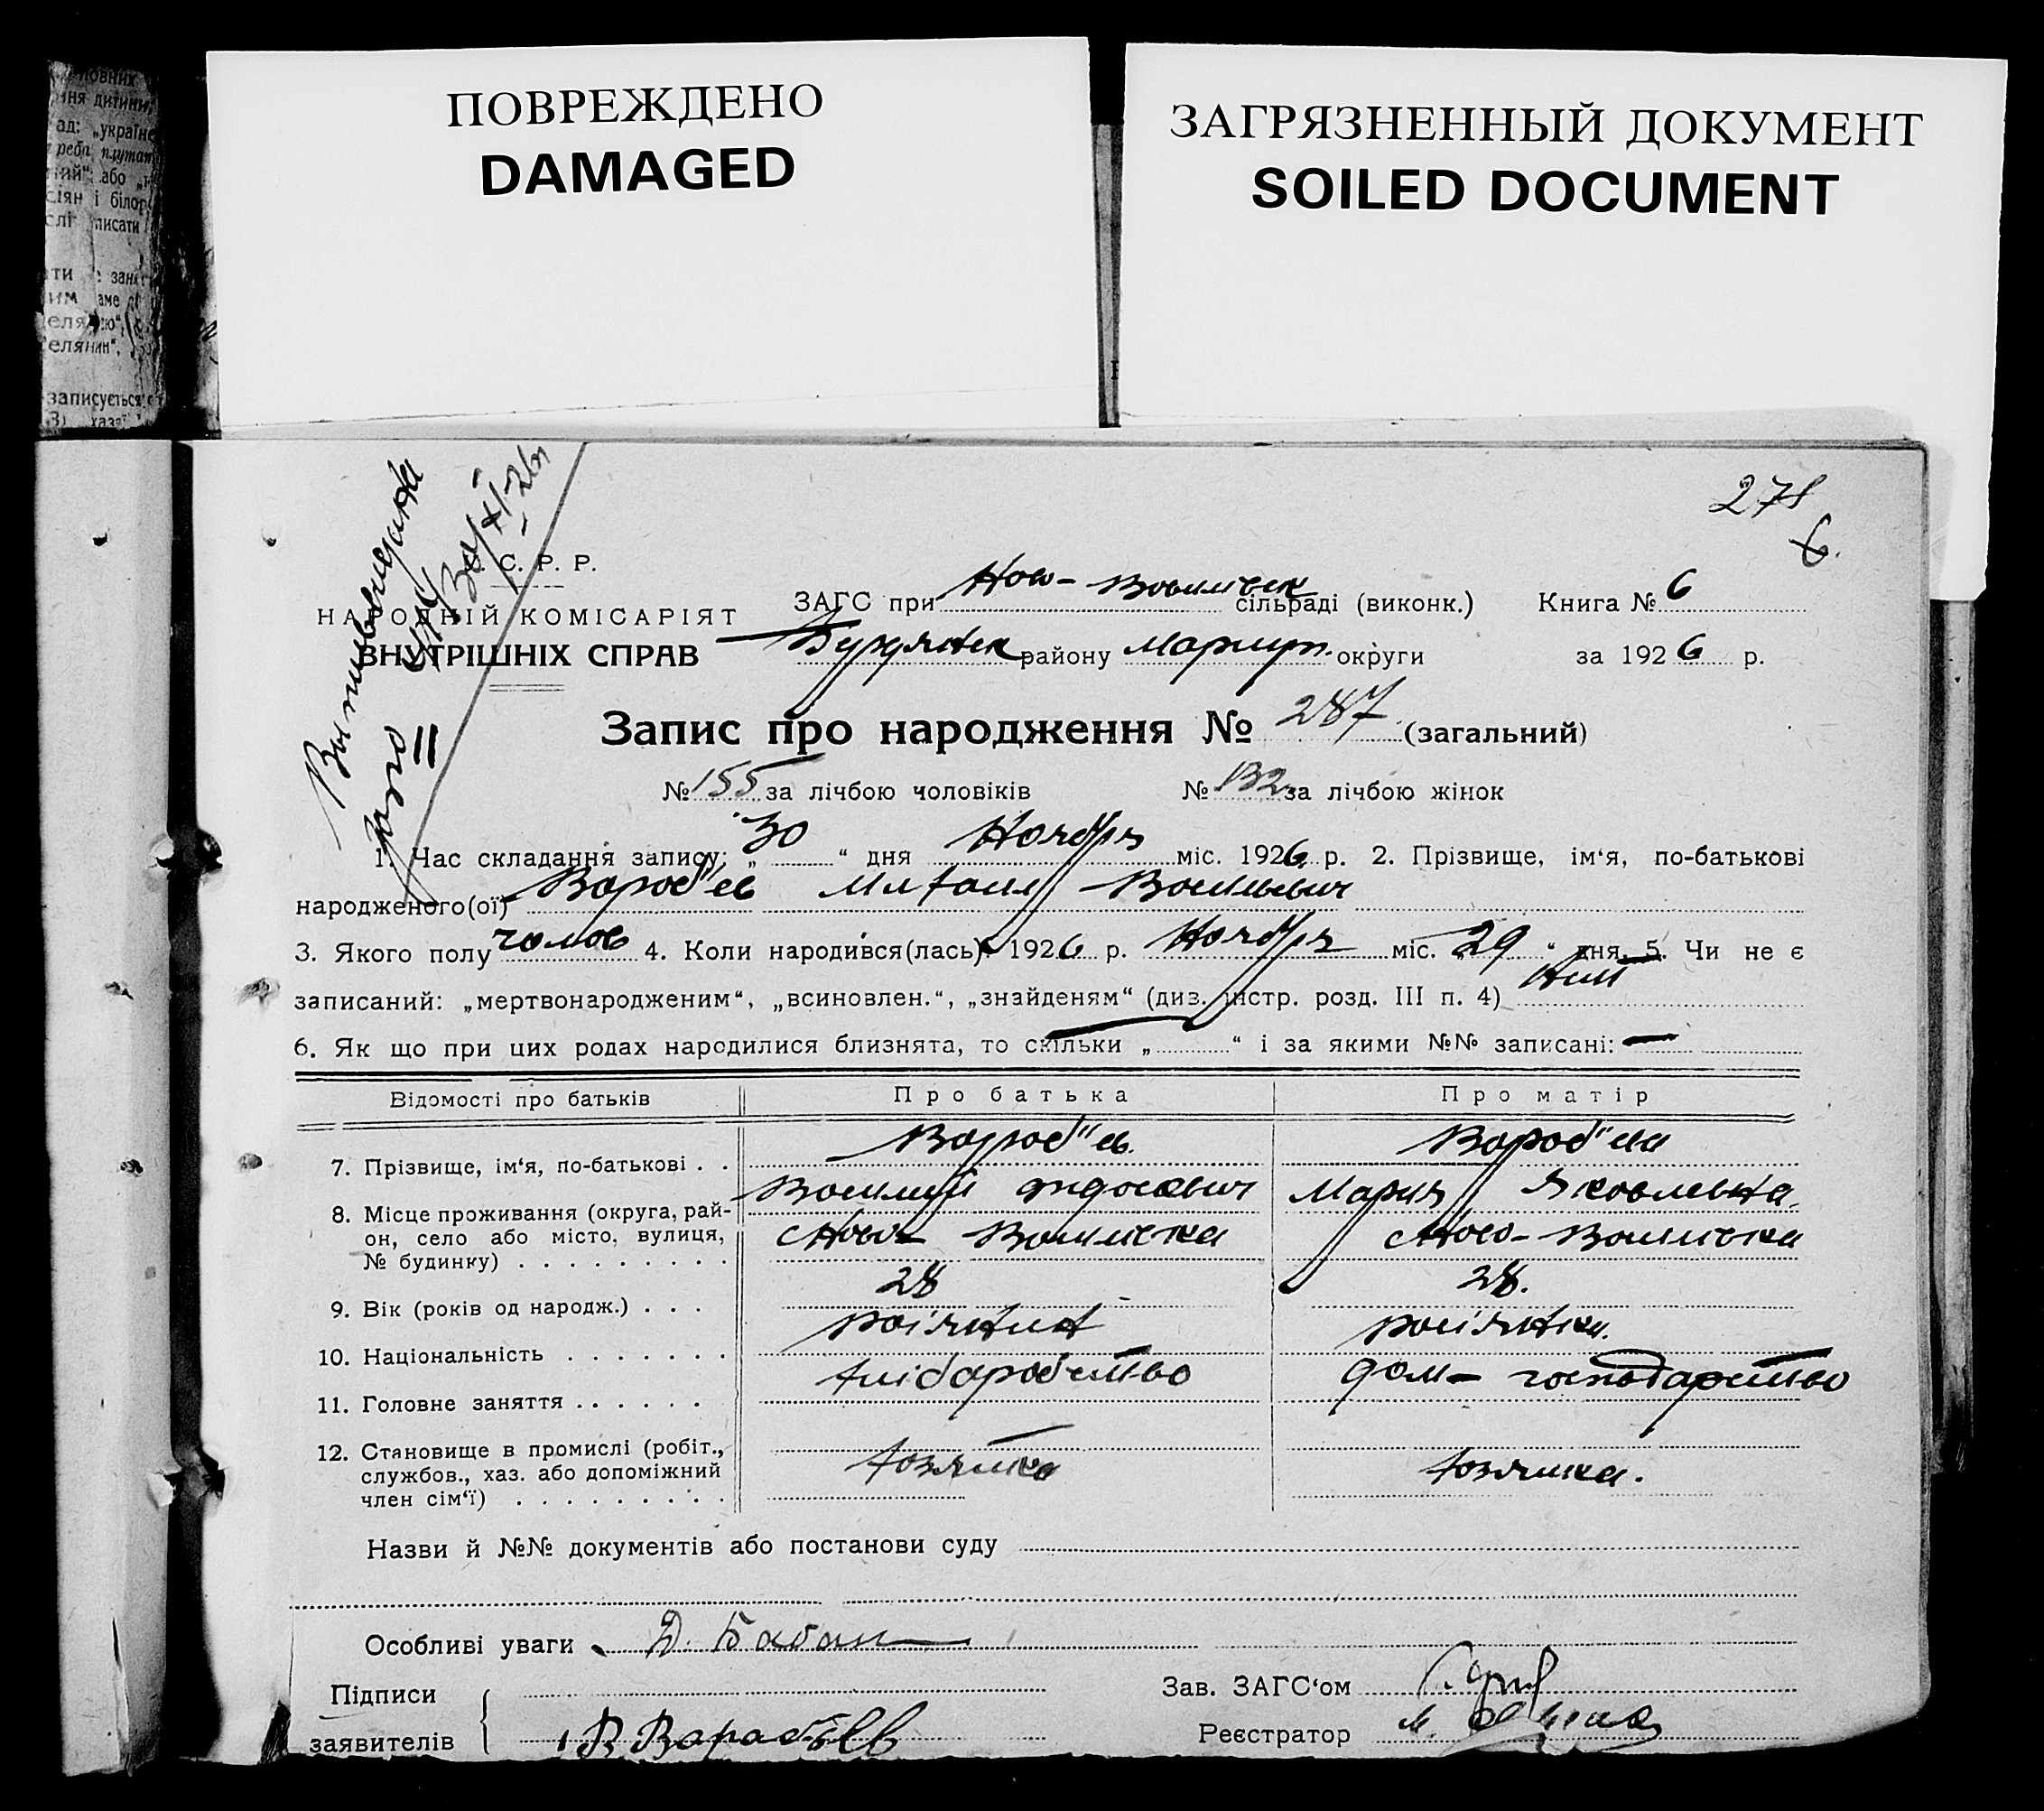 ПОВРЕЖДЕНО
DAMAGED
ЗАГРЯЗНЕННЫЙ ДОКУМЕНТ
SOILED DOCUMENT
ад: „україн
або
і білор
писати
записується
278
6.
С. Р. Р.
НАРОДНІЙ КОМІСАРІЯТ
ВНУТРІШНІХ СПРАВ
ЗАГС при Ново- Василівськ сільраді (виконк.) Книга № 6
району Мариуп. округи за 1926 р.
Запис про народження № 287 (загальний)
№ 155 за лічбою чоловіків № 132 за лічбою жінок
1. Час складання запису: „30“ дня Ноября міс. 1926 р. 2. Прізвище, ім‘я, по-батькові
народженого(ої) Вороб"ев Михаил Васильевич
3. Якого полу чолов 4. Коли народився(лась) 1926 р. Ноября міс. „29“ дня. 5. Чи не є
записаний: „мертвонародженим“, „всиновлен.“, „знайденям“ (див. інстр. розд. III п. 4) Ні
6. Як що при цих родах народилися близнята, то скільки „ — “ і за якими №№ записані: —
Відомості про батьків Про батька Про матір
7. Прізвище, ім‘я, по-батькові . . Вороб"ев Вороб"ева
Василий Федосович Мария Яковлевна
8. Місце проживання (округа, рай-
он, село або місто, вулиця,
№ будинку) Ново Василівка Ново- Василівка
9. Вік (років од народж.) . . . 28 28.
10. Національність росіянин росіянка.
11. Головне заняття хліборобство дом- господарство
12. Становище в промислі (робіт.,
службов., хаз. або допоміжний
член сім‘ї) хозяйка.
Назви й №№ документів або постанови суду
Особливі уваги Д. Бабан
Підписи
заявителів В Варабьев
Зав. ЗАГС‘ом
Реєстратор М.